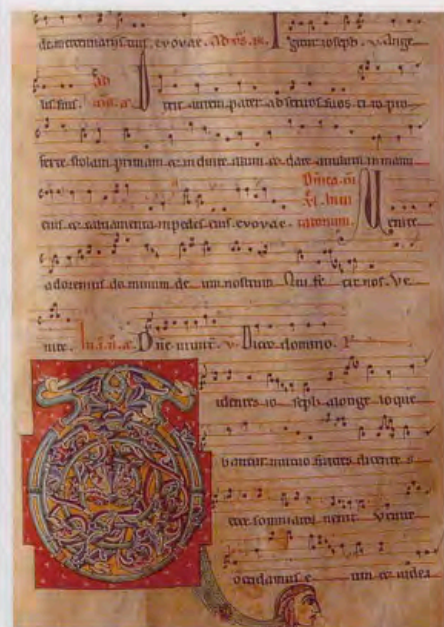 de mercennariis tuis. evovae. ad vs. m. I gitur ioseph. v. ange
lis suis. ad D ixit autem pater ad servos suos cito pro
ferte stolam primam et induite illum et date anulum in manu
eius et calciamenta in pedes eius. evovae. Dnica. iii
tatorium. V enite
adoremus dominum deum nostrum Qui fecit nos. Ve
nite. D ne v. Dixit domino. R
identes ioseph a longe loque
bantur mutuo fratres dicentes
ecce somniator venit venite
occidamus eum et videa